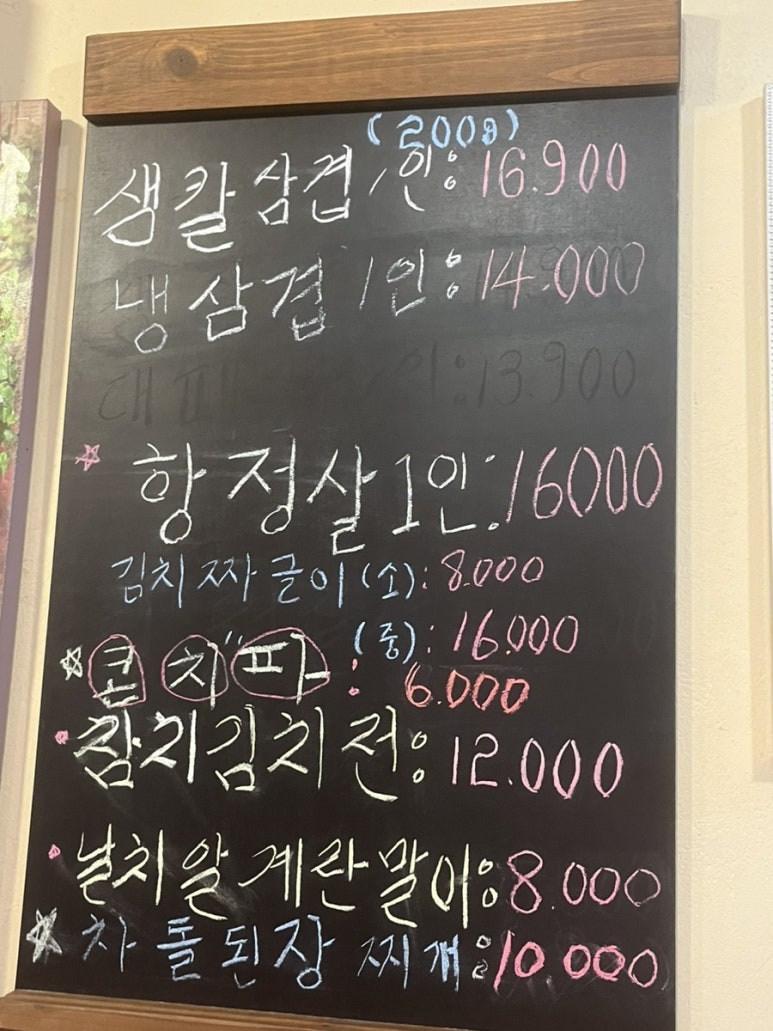 (200g)
생칼삼겹 1인: 16.900
냉삼겹 1인: 14.000
대패 1인: 13.900
항정살 1인: 16000
김치짜글이(소): 8.000
(중): 16.000
콘치파: 6.000
참치김치전: 12.000
날치알계란말이: 8.000
차돌된장찌개: 10.000